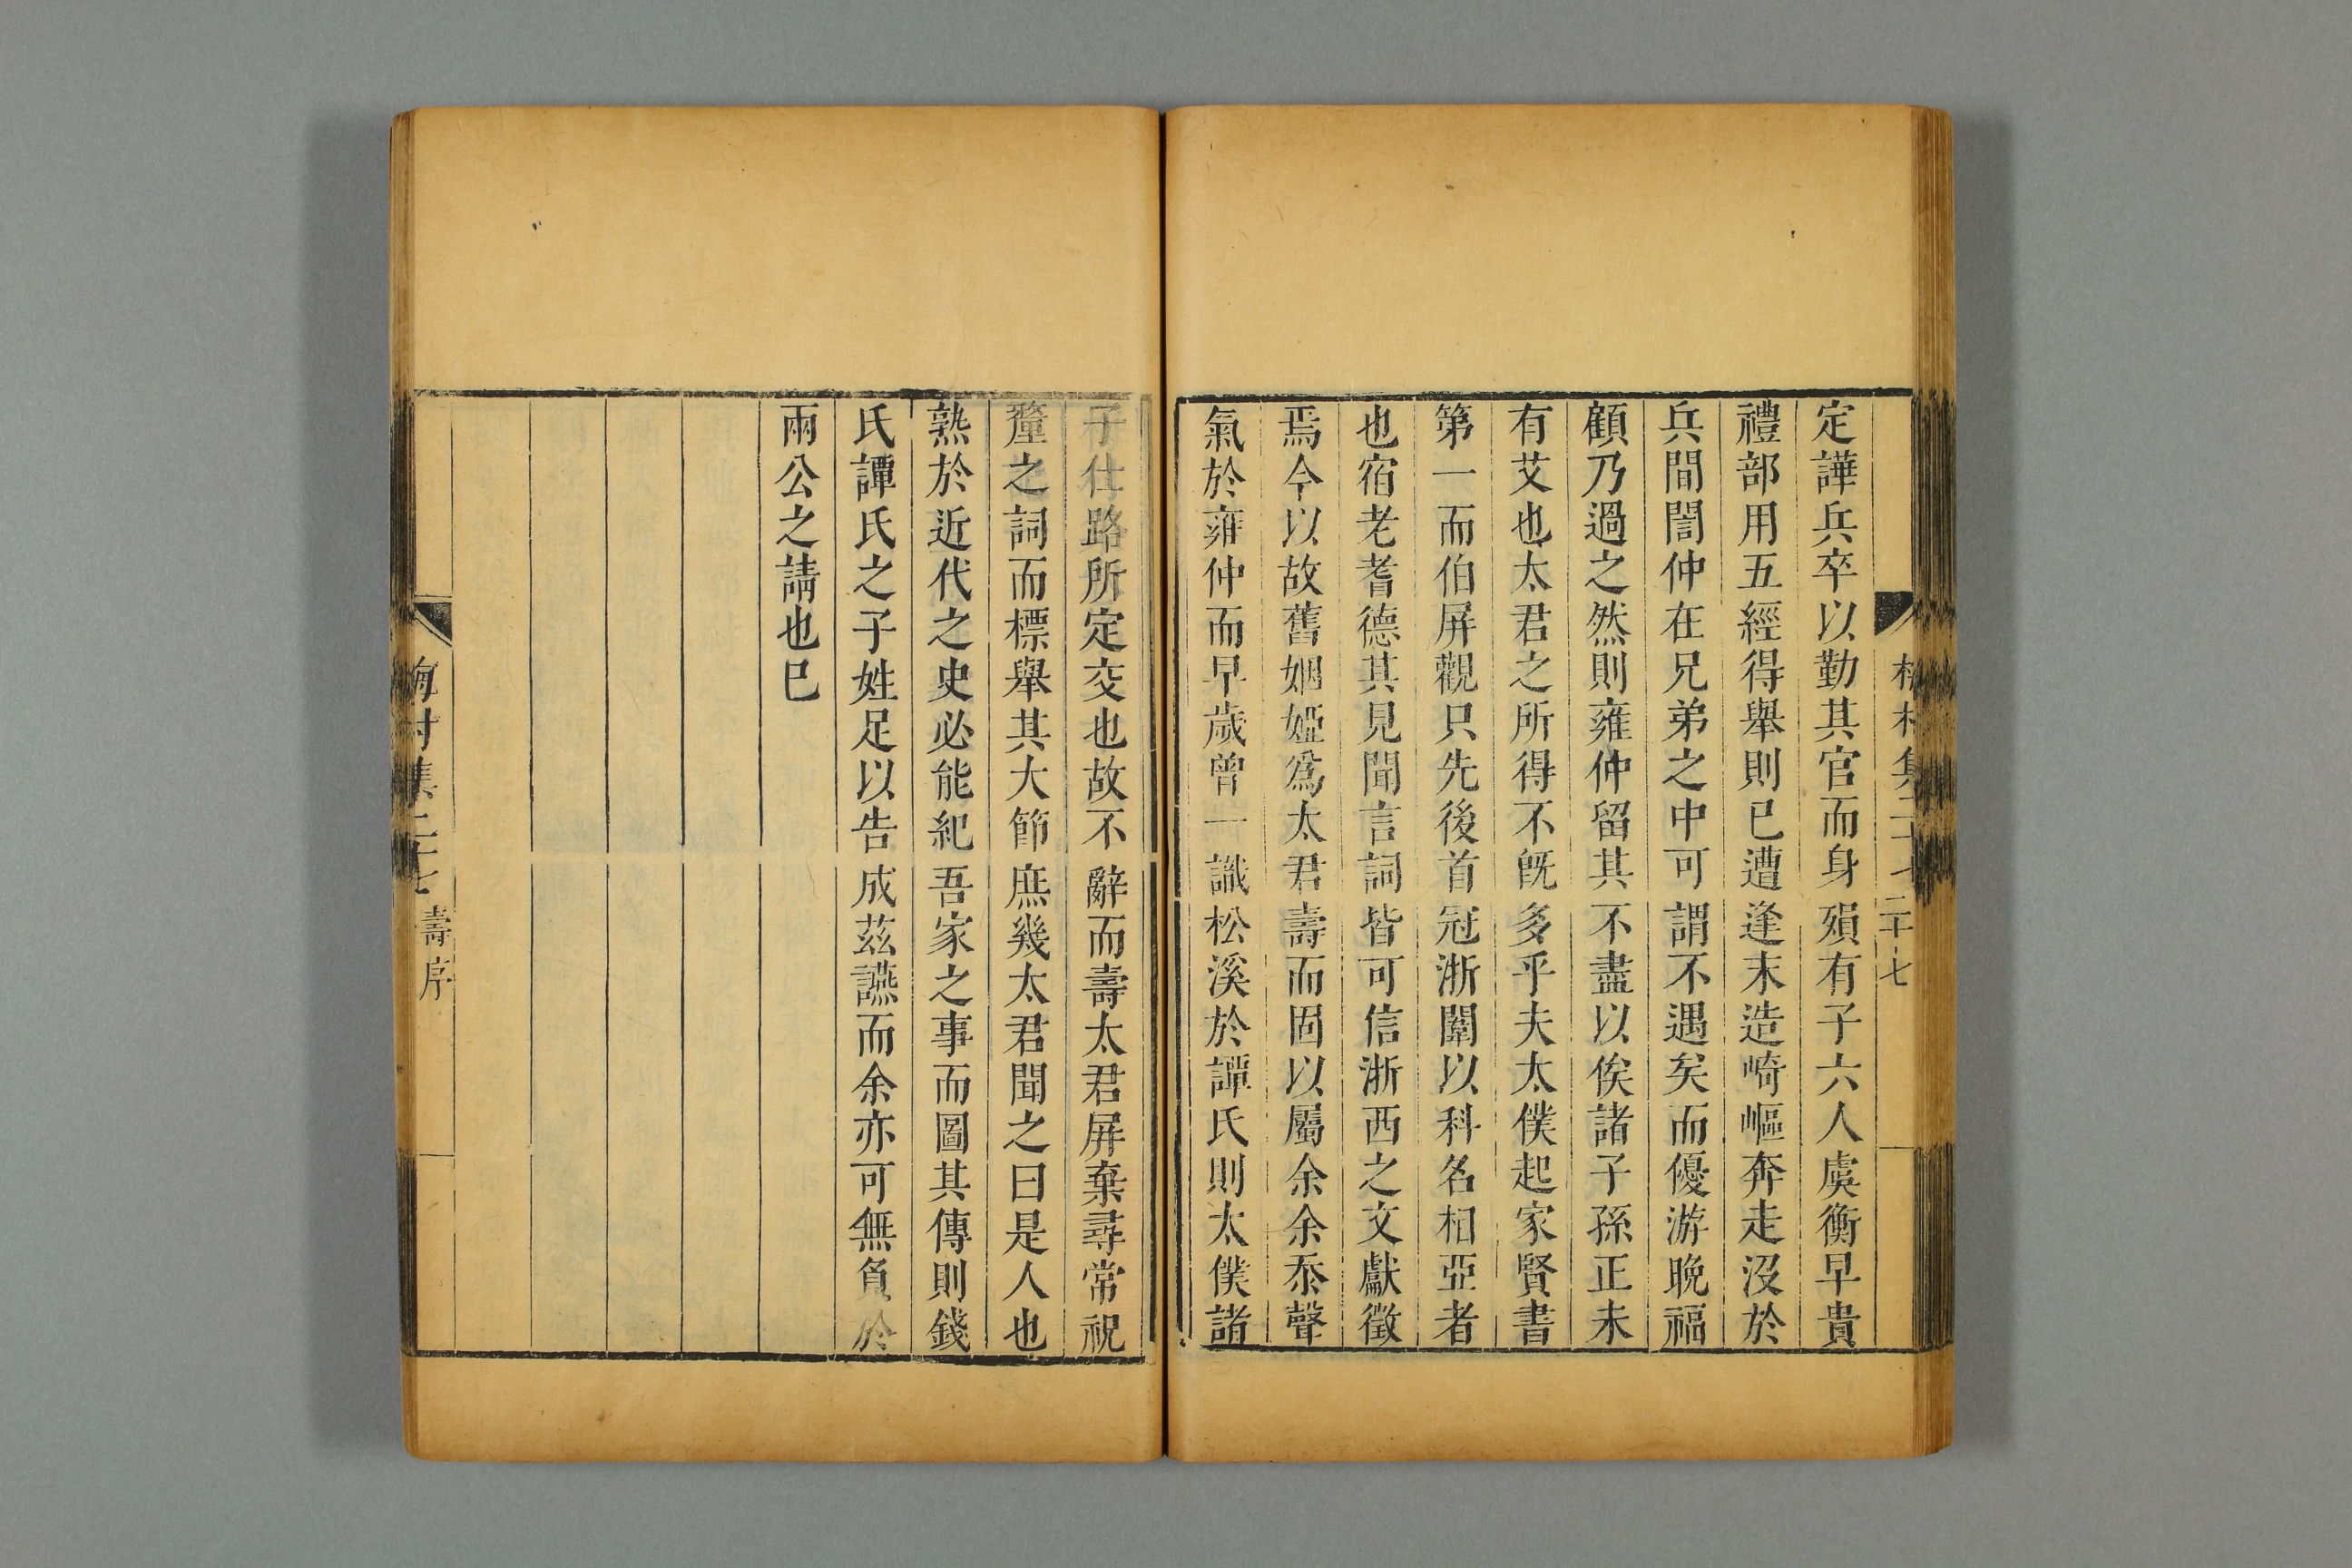 梅村集二十七
二十七
定譁兵卒以勤其官而身殞有子六人虞衡早貴
禮部用五經得舉則已遭逢末造崎嶇奔走沒於
兵間誾仲在兄弟之中可謂不遇矣而優游晚福
顧乃過之然則雍仲留其不盡以俟諸子孫正未
有艾也太君之所得不旣多乎夫太僕起家賢書
第一而伯屏觀只先後首冠浙闈以科名相亞者
也宿老耆德其見聞言詞皆可信浙西之文獻徵
焉今以故舊姻婭爲太君壽而固以屬余余忝聲
氣於雍仲而早歲曾一識松溪於譚氏則太僕諸
子仕路所定交也故不辭而壽太君屏棄尋常祝
釐之詞而標舉其大節庶幾太君聞之曰是人也
熟於近代之史必能紀吾家之事而圖其傳則錢
氏譚氏之子姓足以告成茲讌而余亦可無負於
兩公之請也已
梅村集二十七
壽序